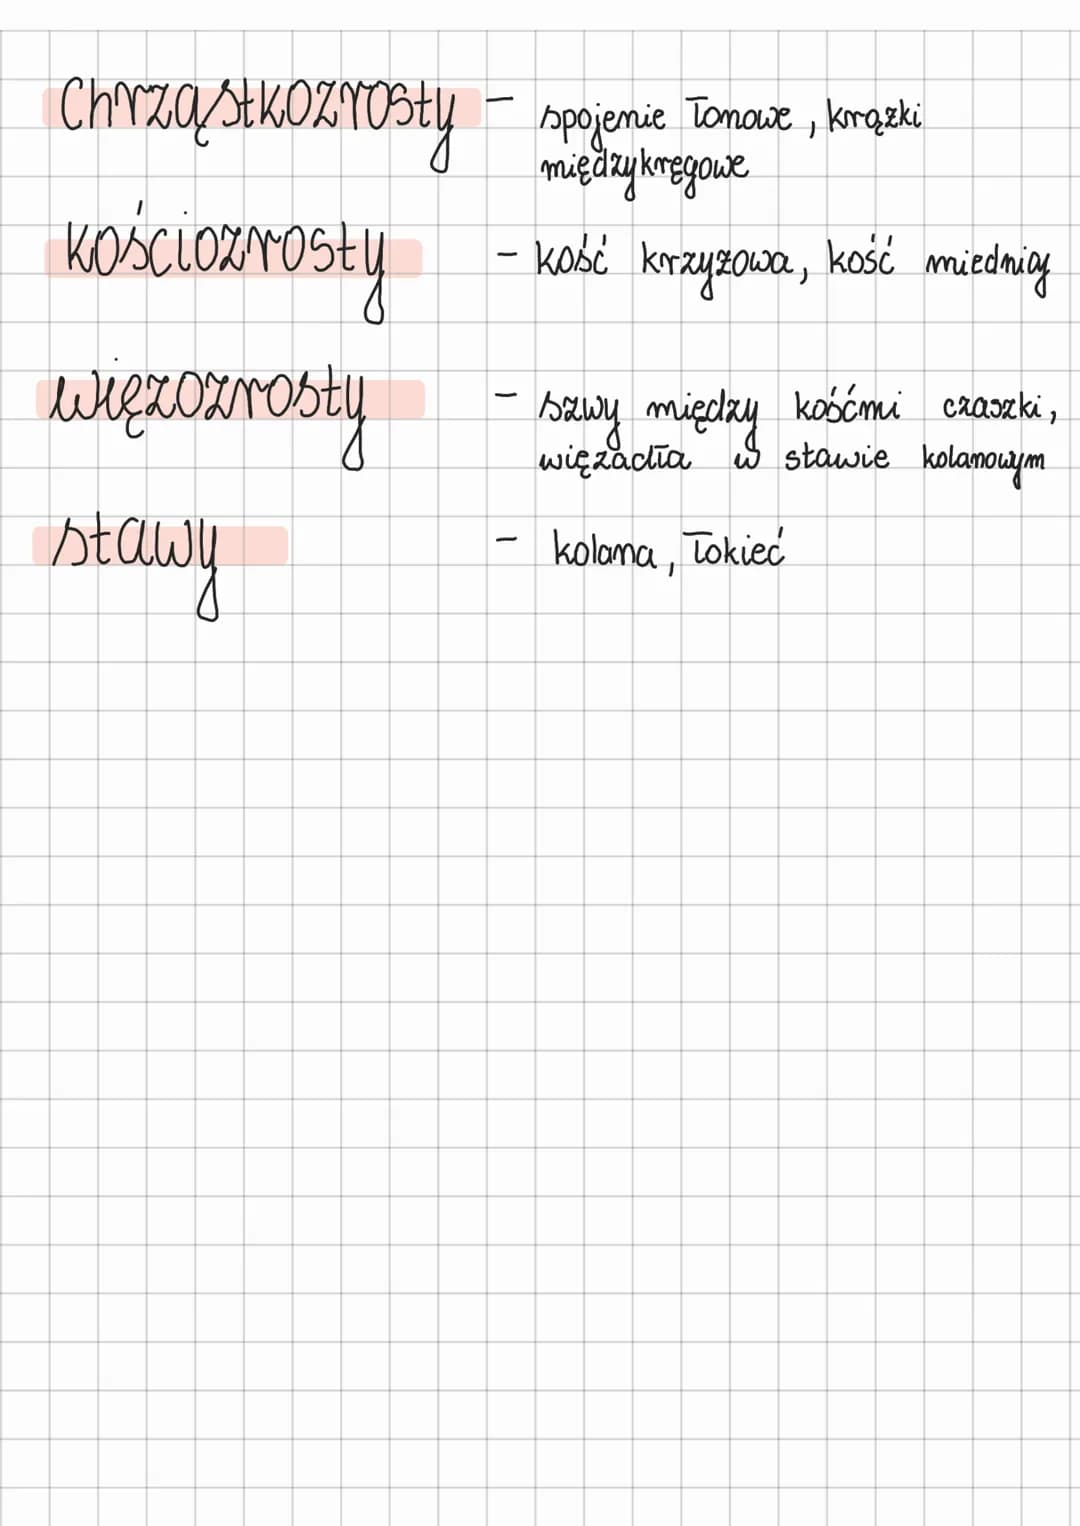 Chrząstkozrosty - spojenie łonowe, krążki
międzykręgowe
kościozrosty - kość krzyżowa, kość miednicy
więzozrosty - szwy między kośćmi czaszki,
więzadła w stawie kolanowym
stawy - kolana, łokieć